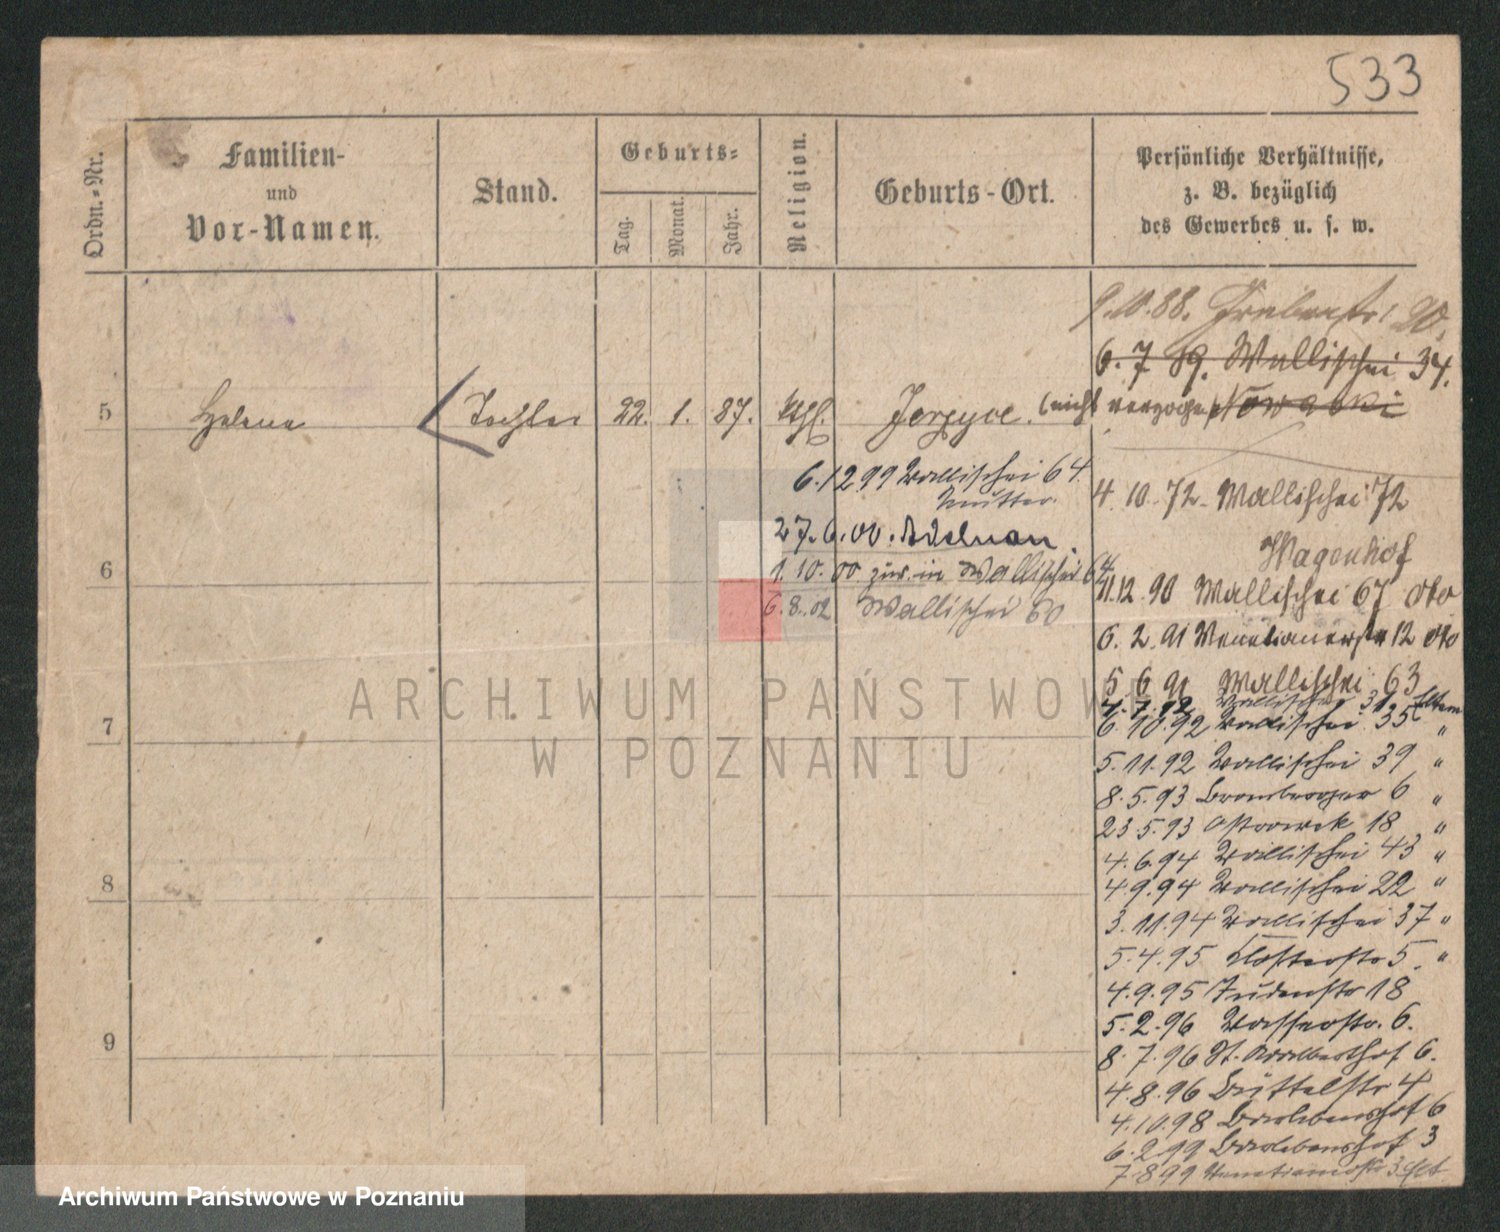 533
Ordn.-Nr.
Familien-
und
Vor-Namen.
Stand.
Geburts-
Tag.
Monat.
Jahr.
Religion.
Geburts-Ort.
Persönliche Verhältnisse,
z. B. bezüglich
des Gewerbes u. s. w.
9.10.88. 20.
6.7 89. Wallischei 34.
5 Helene Tochter 22. 1. 87. kth. Jerzyce. (nicht verzogen) Nowaski
6.12 99 Wallischei 64.
Mutter.
4.10.72. Wallischei 72
27.6.00.
Wagenhof
6
1.10.00 zur. in Wallischei 64
11.12.90 Wallischei 67 oto
6.8.02 Wallischei 60
6.2.91 Venetianerstr 12 oto
5 6 91 Wallischei 63
4.7.92 Wallischei 31 Eltern
7
6.10.92 Wallischei 35 "
5.11.92 Wallischei 39 "
8.5.93 Bromberger 6 "
23.5.93 Ostrowek 18 "
4.6.94 Wallischei 43 "
8
4.9.94 Wallischei 22 "
3.11.94 Wallischei 37 "
5.4.95 Klosterstr 5. "
4.9.95 Judenstr 18
5.2.96 Wasserstr. 6.
9
8.7.96 St. Adalberthof 6.
4.8.96 Büttelstr 4
4.10.98 Barlebenshof 6
6.2.99 Barlebenshof 3
7.8 99 Venetianerstr 3
ARCHIWUM PAŃSTWOW
W POZNANIU
Archiwum Państwowe w Poznaniu